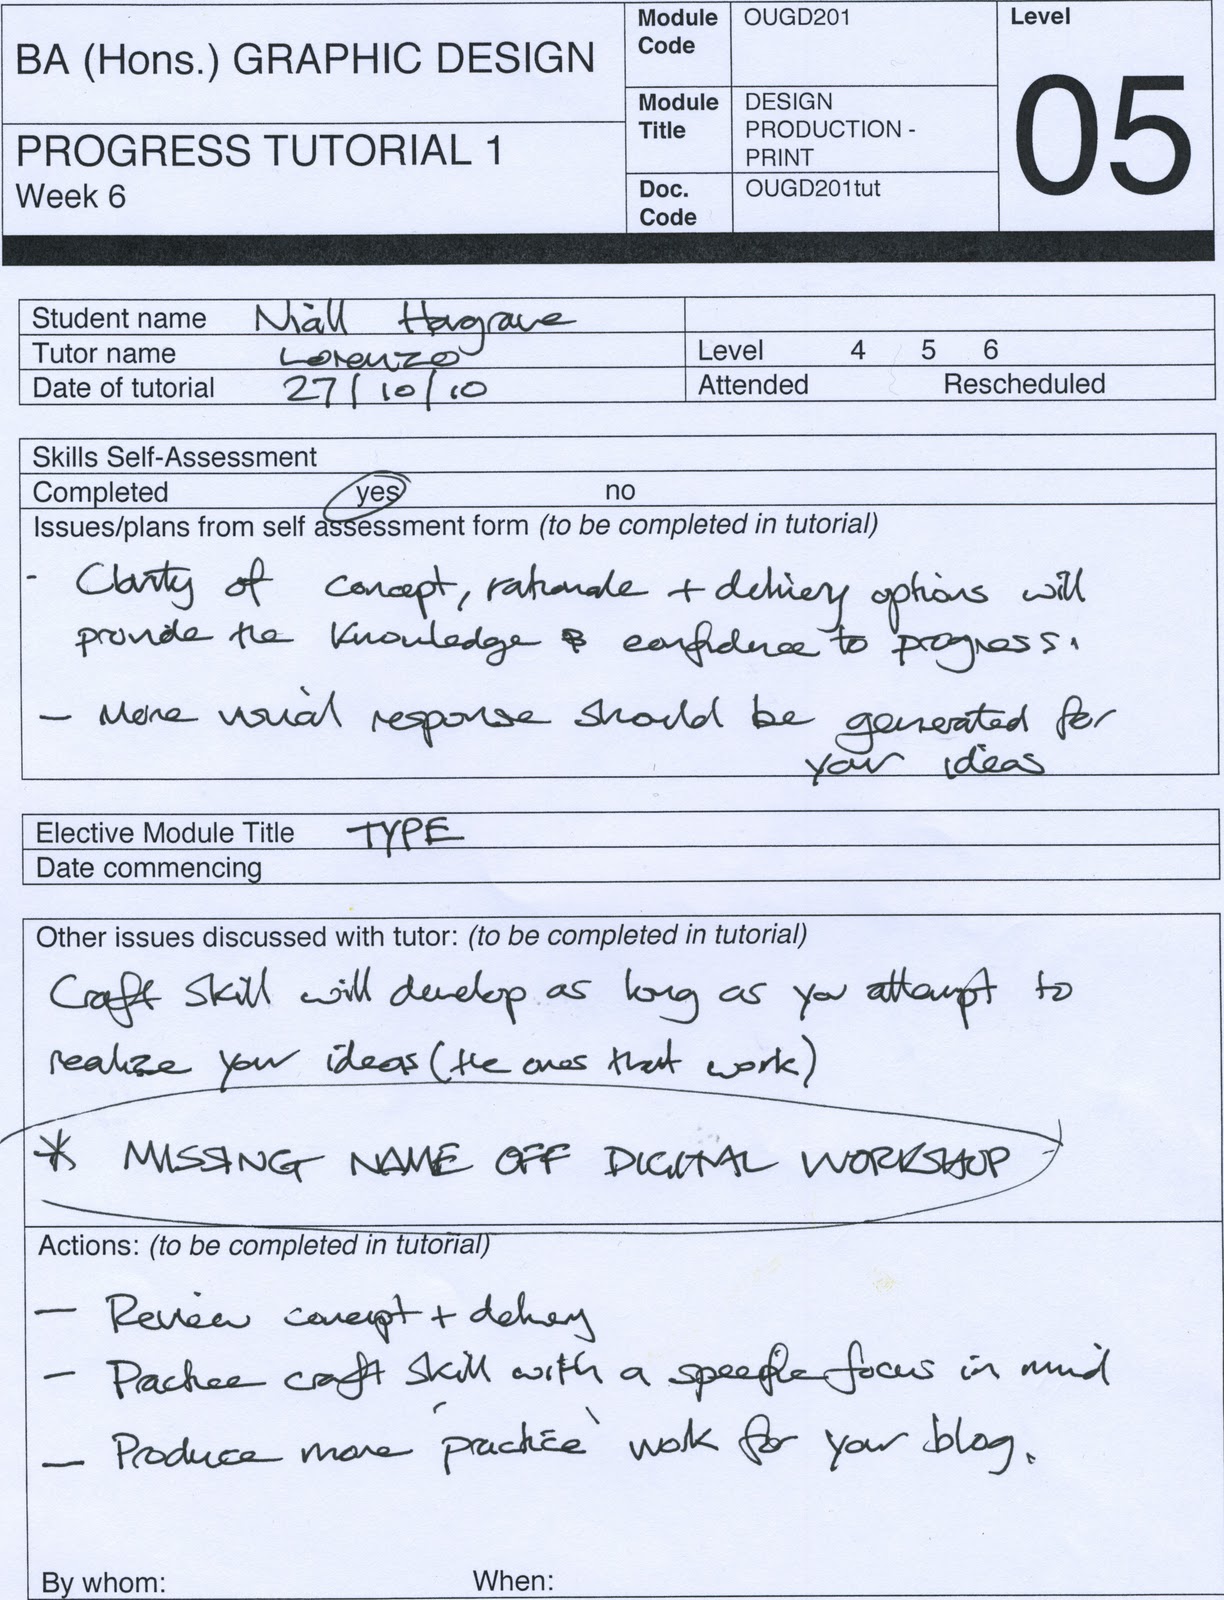 BA (Hons.) GRAPHIC DESIGN
PROGRESS TUTORIAL 1
Week 6
Module Code OUGD201
Module Title DESIGN PRODUCTION - PRINT
Doc. Code OUGD201tut
Level
05
Student name Niall Hargrave
Tutor name Lorenzo
Level 4 5 6
Date of tutorial 27/10/10
Attended Rescheduled
Skills Self-Assessment
Completed yes no
Issues/plans from self assessment form (to be completed in tutorial)
- Clarity of concept, rationale + delivery options will
provide the knowledge & confidence to progress.
- More visual response should be generated for
your ideas
Elective Module Title TYPE
Date commencing
Other issues discussed with tutor: (to be completed in tutorial)
Craft skill will develop as long as you attempt to
realize your ideas (the ones that work)
* MISSING NAME OFF DIGITAL WORKSHOP
Actions: (to be completed in tutorial)
- Review concept + delivery
- Practice craft skill with a specific focus in mind
- Produce more 'practice' work for your blog.
By whom: When: